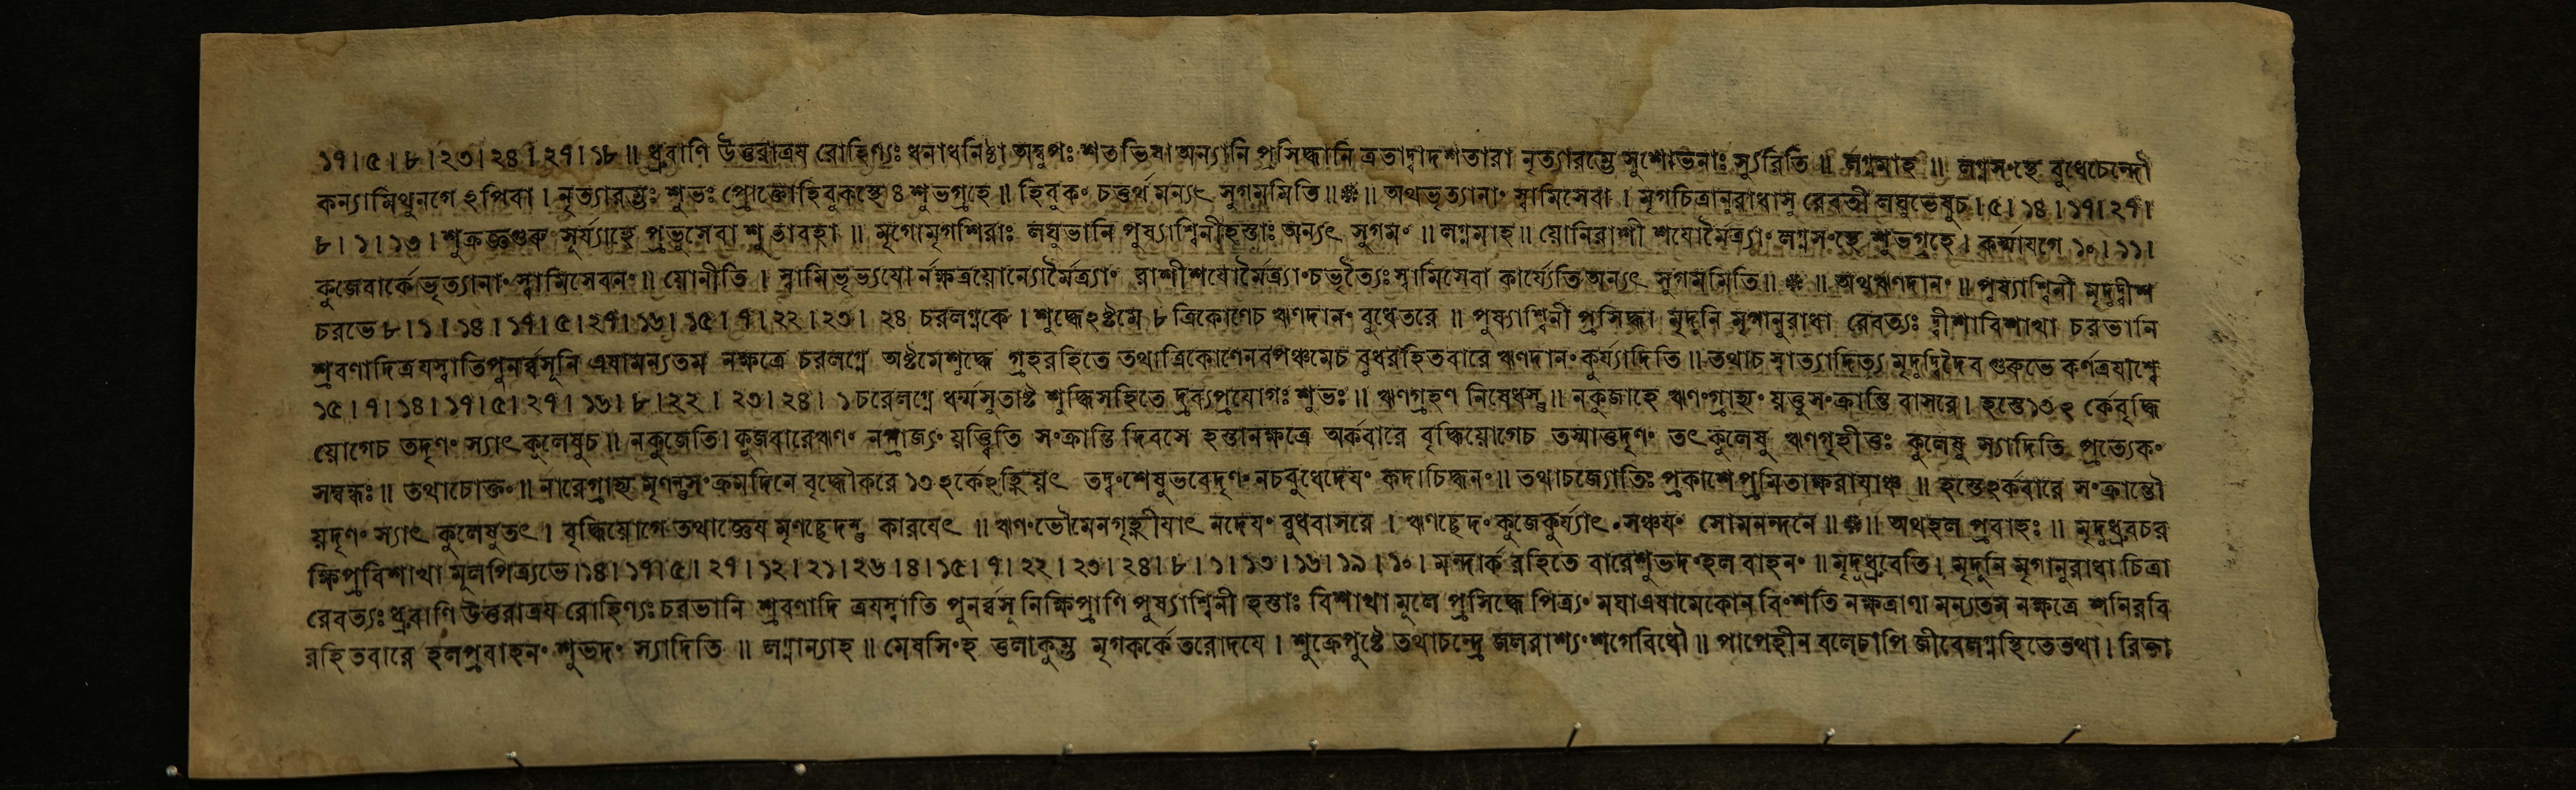 ১৭।৫।৮।২৩।২৪।২৭।১৮॥ ধ্রুবাণি উত্তরাত্রয রোহিণ্যঃ ধনাধনিষ্ঠা অম্বুপঃ শতভিষা অন্যানি প্রসিদ্ধানি ত্রতাদ্বাদশতারা নৃত্যারম্ভে সুশোভনাঃ স্যুরিতি॥ লগ্নমাহ॥ লগ্নস৹হে বুধেচেন্দৌ
কন্যামিথুনগে ঽপিবা। নৃত্যারম্ভঃ শুভঃ প্রোক্তোহিবুকস্থেঃ শুভগ্রহে॥ হিবুক৹ চতুর্থ মন্যৎ সুগমমিতি॥ ॥ অথভৃত্যানা৹ স্বামিসেবা। মৃগচিত্রানুরাধাসু রেবতী লঘুভেষুচ।৫।১৪।১৭।২৭।
৮।১।১৩। শুক্রজ্ঞগুরু সূর্য্যাহে প্রভুসেবা শুভাবহা॥ মৃগোমৃগশিরাঃ লঘুভানি পুষ্যাশ্বিনীহস্তাঃ অন্যৎ সুগম৹॥ লগ্নমাহ॥ য়োনিরাশী শযোর্মৈত্র্যা৹ লগ্নস৹হে শুভগ্রহে। কর্ম্মাযগে ১০।১১।
কুজেবার্কে ভৃত্যানা৹ স্বামিসেবন৹॥ য়োনীতি। স্বামিভৃত্যযো র্নক্ষত্রয়োন্যোর্মৈত্র্যা৹ রাশীশযোর্মৈত্র্যা৹চভৃত্যৈঃ স্বামিসেবা কার্য্যেতি অন্যৎ সুগমমিতি॥ ॥ অথঋণদান৹॥ পুষ্যাশ্বিনী মৃদুদ্বীশ
চরভে ৮।১।১৪।১৭।৫।২৭।১৬।১৫।৭।২২।২৩। ২৪ চরলগ্নকে। শুদ্ধেঽষ্টমে ৮ ত্রিকোণেচ ঋণদান৹ বুধেতরে॥ পুষ্যাশ্বিনী প্রসিদ্ধা মৃদুনি মৃগানুরাধা রেবত্যঃ দ্বীশাবিশাখা চরভানি
শ্রবণাদিত্রযস্বাতিপুনর্ব্বসূনি এষামন্যতম নক্ষত্রে চরলগ্নে অষ্টমেশুদ্ধে গ্রহরহিতে তথাত্রিকোণেনবপঞ্চমেচ বুধরহিতবারে ঋণদান৹ কুর্য্যাদিতি॥ তথাচ স্বাত্যাদিত্য মৃদুদ্বিদৈব গুরুভে কর্ণত্রযাশ্বে
১৫।৭।১৪।১৭।৫।২৭।১৬।৮।২২। ২৩।২৪। ১ চরেলগ্নে ধর্ম্মসুতাষ্ট শুদ্ধিসহিতে দ্রব্যপ্রযোগঃ শুভঃ॥ ঋণগ্রহণ নিষেধস্তু॥ নকুজাহে ঋণ৹গ্রাহ্য৹ য়ত্তুস৹ক্রান্তি বাসরে। হস্তে১৩ঽ র্কেবৃদ্ধি
য়োগেচ তদৃণ৹ স্যাৎ কুলেষুচ॥ নকুজেতি। কুজবারেঋণ৹ য়ত্ত্বিতি স৹ক্রান্তি দিবসে হস্তানক্ষত্রে অর্কবারে বৃদ্ধিয়োগেচ তস্মাত্তদৃণ৹ তৎকুলেষু ঋণগৃহীত্তঃ কুলেষু স্যাদিতি প্রত্যেক৹
সম্বন্ধঃ॥ তথাচোক্ত৹॥ নারেগ্রাহ্য মৃণন্তুস৹ক্রমদিনে বৃদ্ধৌকরে ১৩ঽর্কেঽহ্নিয়ৎ তদ্ব৹শেষুভবেদৃণ৹ নচবুধেদেয৹ কদাচিদ্ধন৹॥ তথাচজ্যোতিঃ প্রকাশে প্রমিতাক্ষরাযাঞ্চ॥ হস্তেঽর্কবারে স৹ক্রান্তৌ
য়দৃণ৹ স্যাৎ কুলেষুতৎ। বৃদ্ধিয়োগে তথাজ্ঞেয মৃণছেদন্তু কারযেৎ॥ ঋণ৹ভৌমেনগৃহ্ণীযাৎ নদেয৹ বুধবাসরে। ঋণছেদ৹ কুজেকুর্য্যাৎ৹সঞ্চয৹ সোমনন্দনে॥ ॥ অথহল প্রবাহঃ॥ মৃদুধ্রুবচর
ক্ষিপ্রবিশাখা মূলপিত্র্যভে।১৪।১৭।৫। ২৭।১২।২১।২৬।৪।১৫।৭।২২।২৩।২৪।৮।১।১৩।১৬।১৯।১০। মন্দার্ক রহিতে বারেশুভদ৹হল বাহন৹॥ মৃদুধ্রুবেতি। মৃদুনি মৃগানুরাধা চিত্রা
রেবত্যঃ ধ্রুবাণি উত্তরাত্রয রোহিণ্যঃ চরভানি শ্রবণাদি ত্রযস্বাতি পুনর্ব্বসূ নিক্ষিপ্রাণি পুষ্যাশ্বিনী হস্তাঃ বিশাখা মূলে প্রসিদ্ধে পিত্র্য৹ মঘা এষামেকোন বি৹শতি নক্ষত্রাণা মন্যতম নক্ষত্রে শনিরবি
রহিতবারে হলপ্রবাহন৹ শুভদ৹ স্যাদিতি॥ লগ্নান্যাহ॥ মেষসি৹হ তুলাকুম্ভ মৃগকর্কে তরোদযে। শুক্রেপুষ্টে তথাচন্দ্রে জলরাশ্য৹শগেবিধৌ॥ পাপেহীন বলেচাপি জীবেলগ্নস্থিতেতথা। রিক্তা